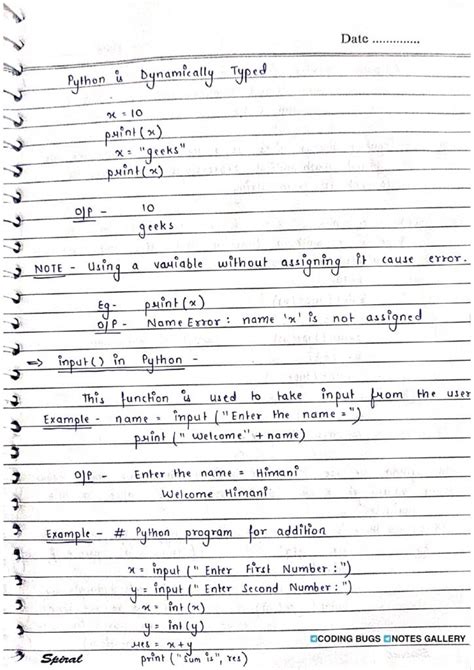 Date ..............
Python is Dynamically Typed
x = 10
print(x)
x = "geeks"
print(x)
O/P - 10
geeks
NOTE - Using a variable without assigning it cause error.
Eg- print(x)
O/P - Name Error : name 'x' is not assigned
⇒ input() in Python -
This function is used to take input from the user
Example - name = input ("Enter the name =")
print (" Welcome" + name)
O/P - Enter the name = Himani
Welcome Himani
Example - # Python program for addition
x = input (" Enter First Number : ")
y = input (" Enter Second Number : ")
x = int (x)
y = int (y)
res = x + y
print ("Sum is", res)
Spiral
CODING BUGS NOTES GALLERY